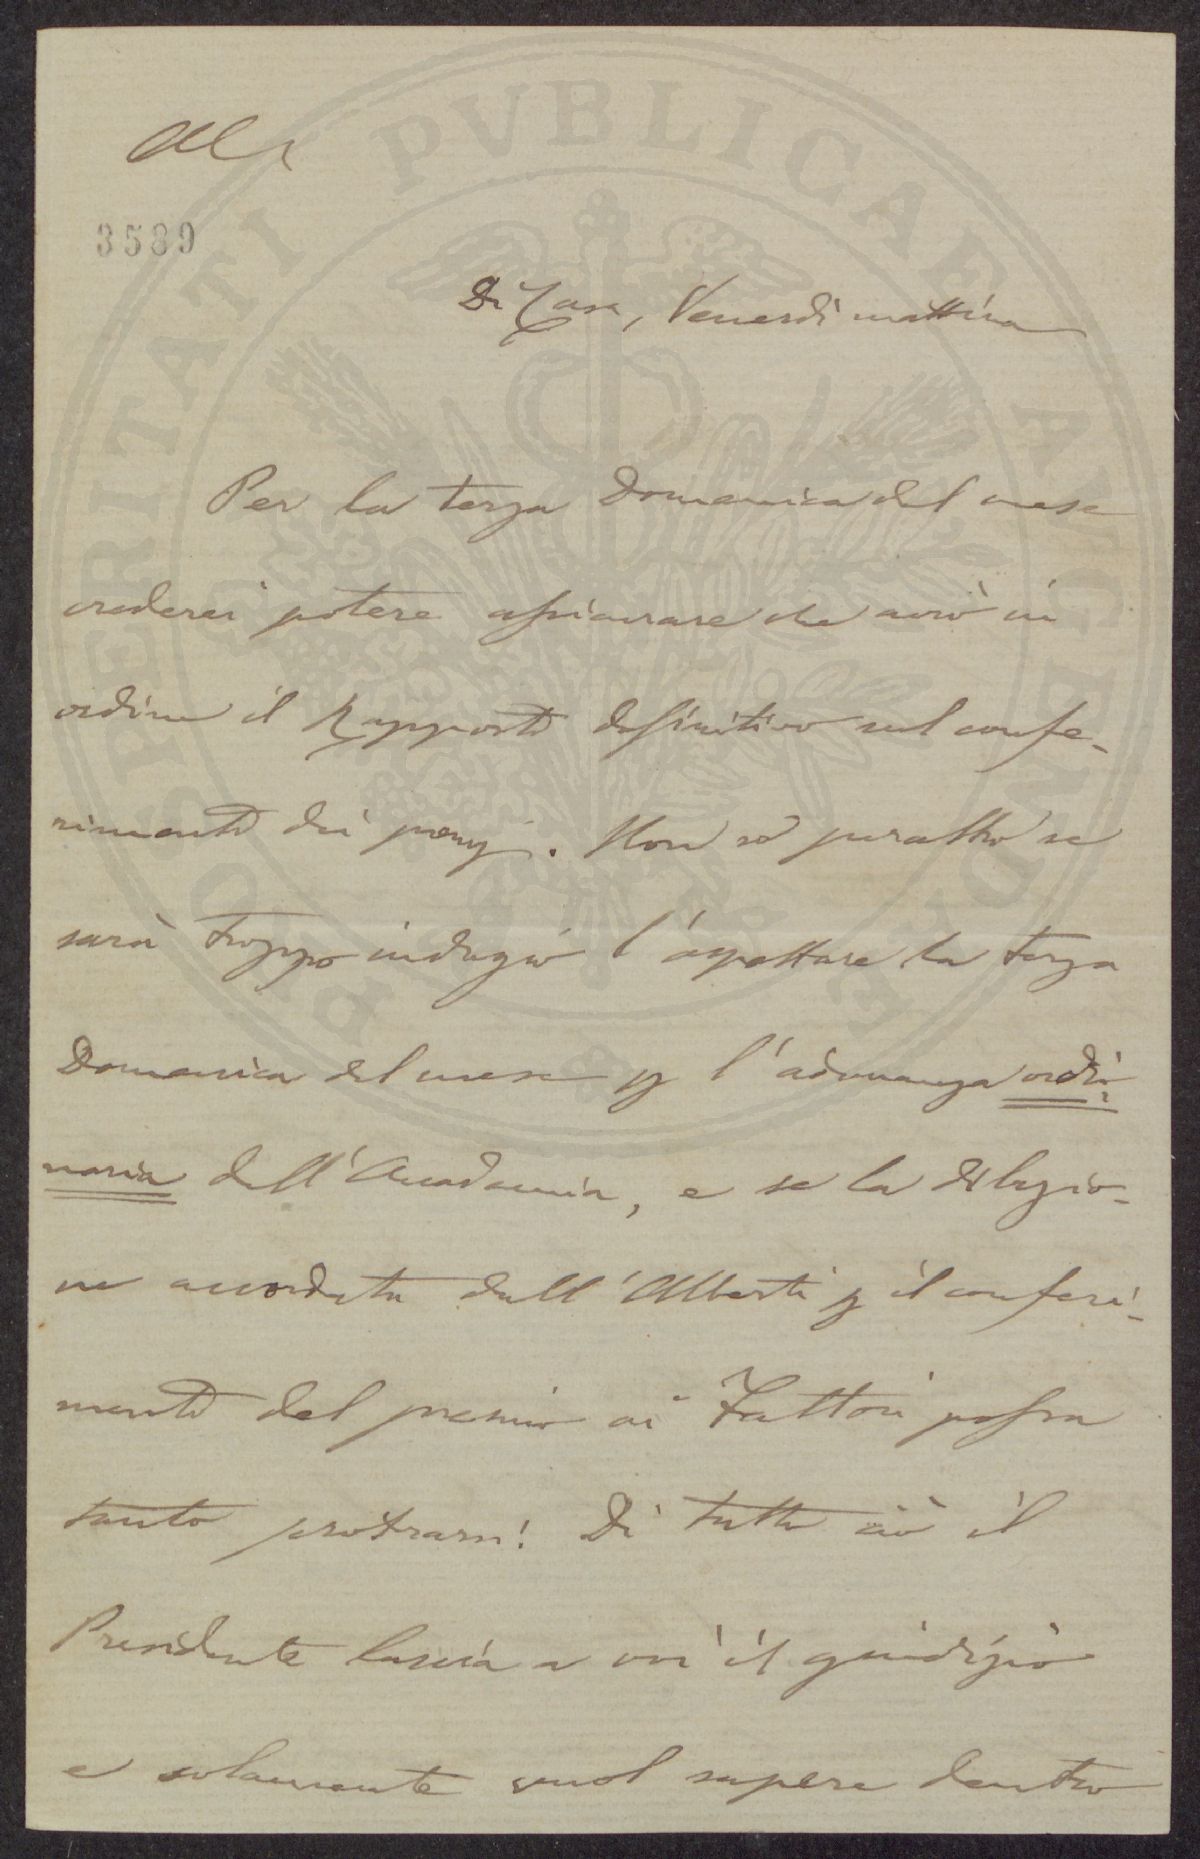 3589
Di Casa, Venerdì mattina
Per la terza Domenica del mese
crederei potere assicurare che avrò in
ordine il Rapporto definitivo sul confe-
rimento dei premj. Non so peraltro se
sarà troppo indugio l'aspettare la terza
Domenica del mese p l'adunanza ordi-
naria dell'Accademia, e se la dilazio-
ne accordata dall'Alberti p il conferi-
mento del premio ai Fattori possa
tanto protrarsi! Di tutto ciò il
Presidente lascia a voi il giudizio
e solamente vuol sapere dentro
PROSPERITATI PVBLICAE AVGENDAE